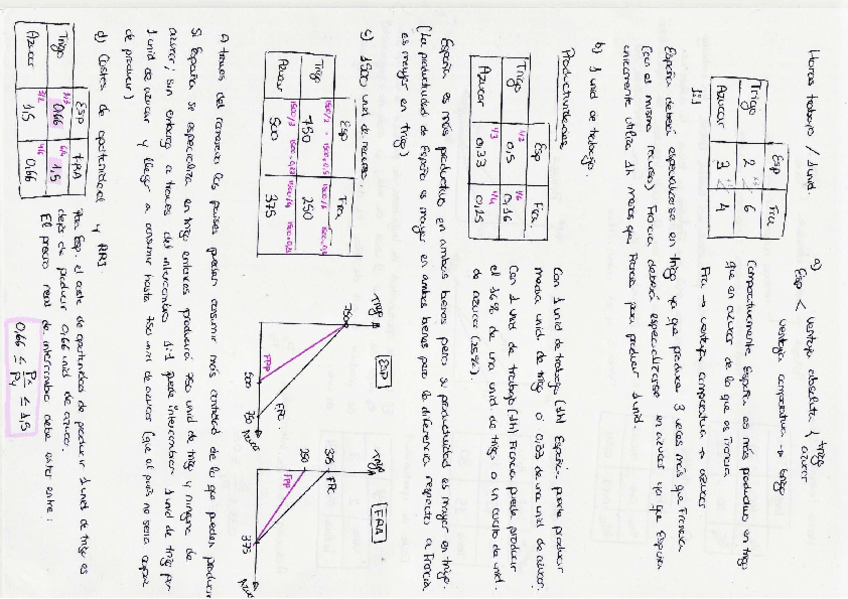 Horas trabajo / 1 unid.
Esp Fra
Trigo 2 6
Azucar 3 4
1:1
a) Esp < ventaja absoluta { trigo azucar
ventaja comparativa → trigo
Comparativamente España es más productivo en trigo
que en azucar de lo que es Francia
Fra → ventaja comparativa → azucar
España deberá especializarse en trigo ya que produce 3 veces más que Francia
(con el mismo recurso) Francia deberá especializarse en azucar ya que España
unicamente utiliza 1h menos que Francia para producir 1 unid.
b) 1 unid de trabajo.
Productividades
Esp Fra
Trigo 1/2 0,5 1/6 0,16
Azucar 1/3 0,33 1/4 0,25
Con 1 unid de trabajo (1h) España puede producir
media unid de trigo ó 0,33 de una unid de azucar.
Con 1 unid de trabajo (1h) Francia puede producir
el 16% de una unid. de trigo o un cuarto de unid.
de azucar (25%).
España es más productiva en ambos bienes pero su productividad es mayor en trigo.
(La productividad de España es mayor en ambos bienes pero la diferencia respecto a Francia
es mayor en trigo)
c) 1500 unid de recursos.
Esp Fra
Trigo 1500/2 = 1500·0,5 750 1500/6 250
Azucar 1500/3 500 1500/4 375
Trigo ESP
750
FPP
FPC
500 750 Azucar
Trigo FRA
375
250
FPC
FPP
375 Azucar
A traves del comercio los paises pueden consumir más cantidad de lo que pueden producir
Si España se especializa en trigo entonces producirá 750 unid de trigo y ninguna de
azucar, sin embargo a traves del intercambio 1-1 puede intercambiar 1 unid de trigo por
1 unid de azucar y llegar a consumir hasta 750 unid de azucar (que el país no sería capaz
de producir)
d) Costes de oportunidad y RRI
Esp FRA
Trigo 2/3 0,66 6/4 1,5
Azucar 3/2 1,5 4/6 0,66
Para Esp. el coste de oportunidad de producir 1 unid de trigo es
dejar de producir 0,66 unid de azucar.
El precio real de intercambio debe estar entre:
0,66 ≤ Px/Py ≤ 1,5